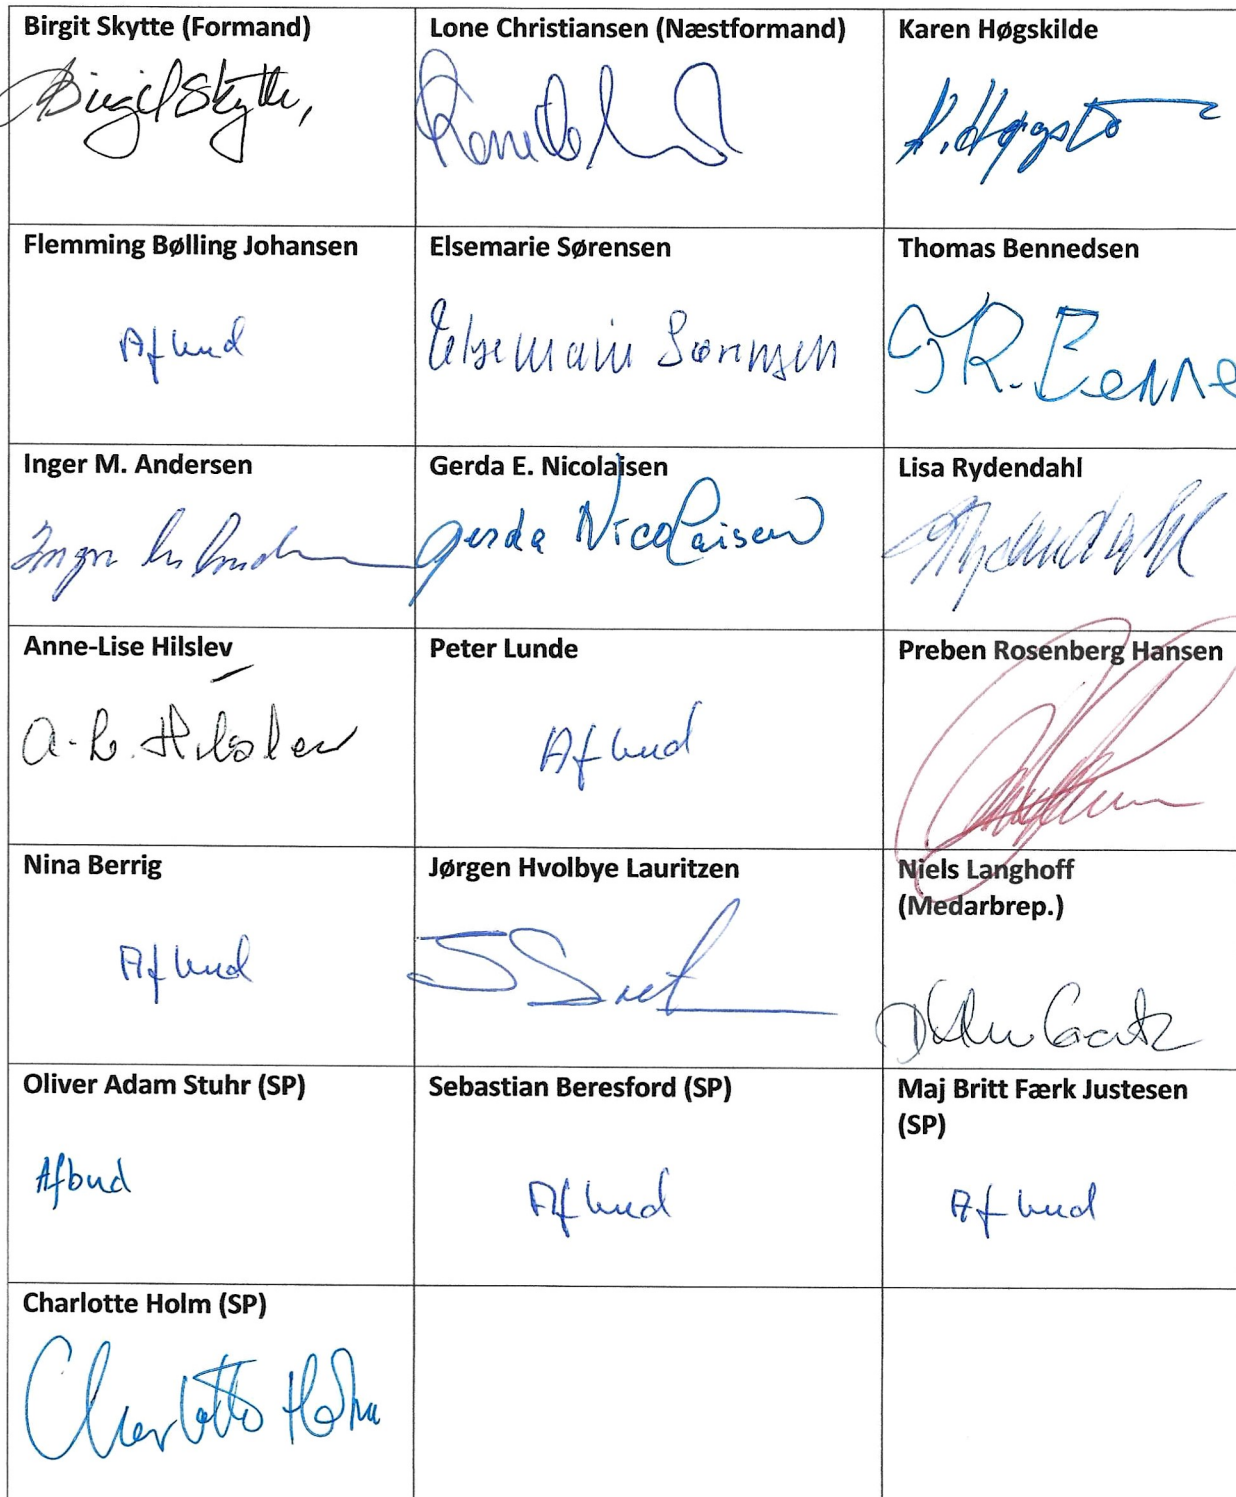 Birgit Skytte (Formand)
Birgit Skytte,
Lone Christiansen (Næstformand)
Karen Høgskilde
Flemming Bølling Johansen
Afbud
Elsemarie Sørensen
Elsemarie Sørensen
Thomas Bennedsen
TR. Benne
Inger M. Andersen
Gerda E. Nicolaisen
Gerda Nicolaisen
Lisa Rydendahl
Anne-Lise Hilslev
A-L. Hilslev
Peter Lunde
Afbud
Preben Rosenberg Hansen
Nina Berrig
Afbud
Jørgen Hvolbye Lauritzen
Niels Langhoff
(Medarbrep.)
Oliver Adam Stuhr (SP)
Afbud
Sebastian Beresford (SP)
Afbud
Maj Britt Færk Justesen
(SP)
Afbud
Charlotte Holm (SP)
Charlotte Holm